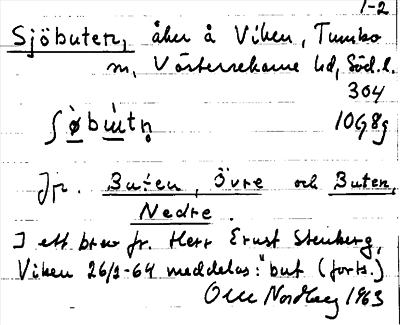 1-2
Sjöbuten, åker å Viken, Tumbo
sn, Västerrekarne hd, Söd.l.
304
ʃø̀bɯ̀tn̥ 10G8g
Jfr. Buten, Övre och Buten,
Nedre.
I ett brev fr. Herr Ernst Stenberg,
Viken 26/2-64 meddelas: "but (forts.)
Olle Nordberg 1963